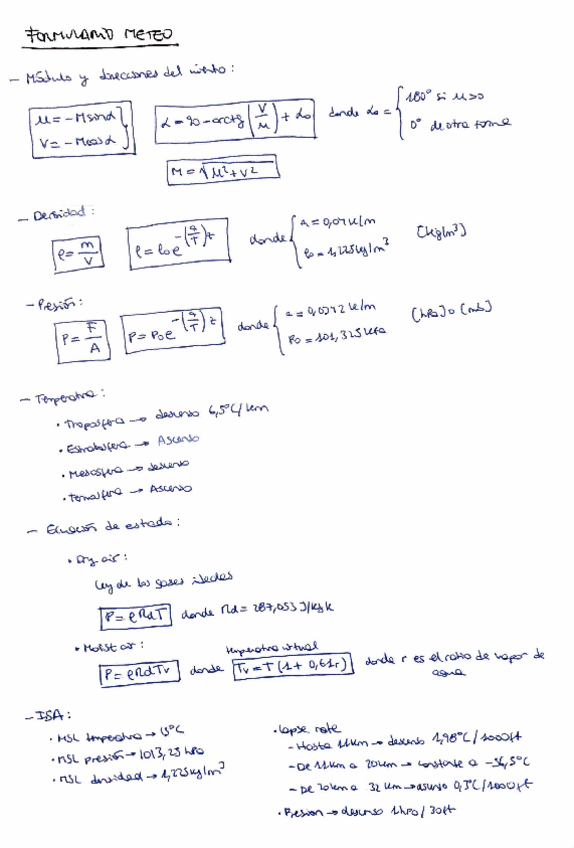 FORMULARIO METEO
- Módulo y direcciones del viento:
u = -M sinα
V = -M cosα
α = 90 - arctg(V/u) + α₀ donde α₀ = { 180° si u>0
0° de otra forma
M = √(u² + v²)
- Densidad:
ρ = m/V
ρ = ρ₀e^(-(a/T)z) donde { a = 0,04 K/m
ρ₀ = 1,225 kg/m³
[kg/m³]
- Presión:
P = F/A
P = P₀e^(-(a/T)z) donde { a = 0,0342 K/m
P₀ = 101,325 kPa
[hPa] o [mb]
- Temperatura:
· Troposfera → descenso 6,5°C/km
· Estratosfera → Ascenso
· Mesosfera → descenso
· Termosfera → Ascenso
- Ecuación de estado:
· Dry air:
Ley de los gases ideales
P = ρRdT donde Rd = 287,053 J/kg k
· Moist air: temperatura virtual
P = ρRdTv donde Tv = T(1 + 0,61r) donde r es el ratio de vapor de
agua
- ISA:
· MSL temperatura → 15°C
· MSL presión → 1013,25 hPa
· MSL densidad → 1,225 kg/m³
· Lapse rate
- Hasta 11km → descenso 1,98°C/1000ft
- De 11km a 20km → constante a -56,5°C
- De 20km a 32 km → ascenso 0,3°C/1000ft
· Presion → descenso 1hPa/30ft